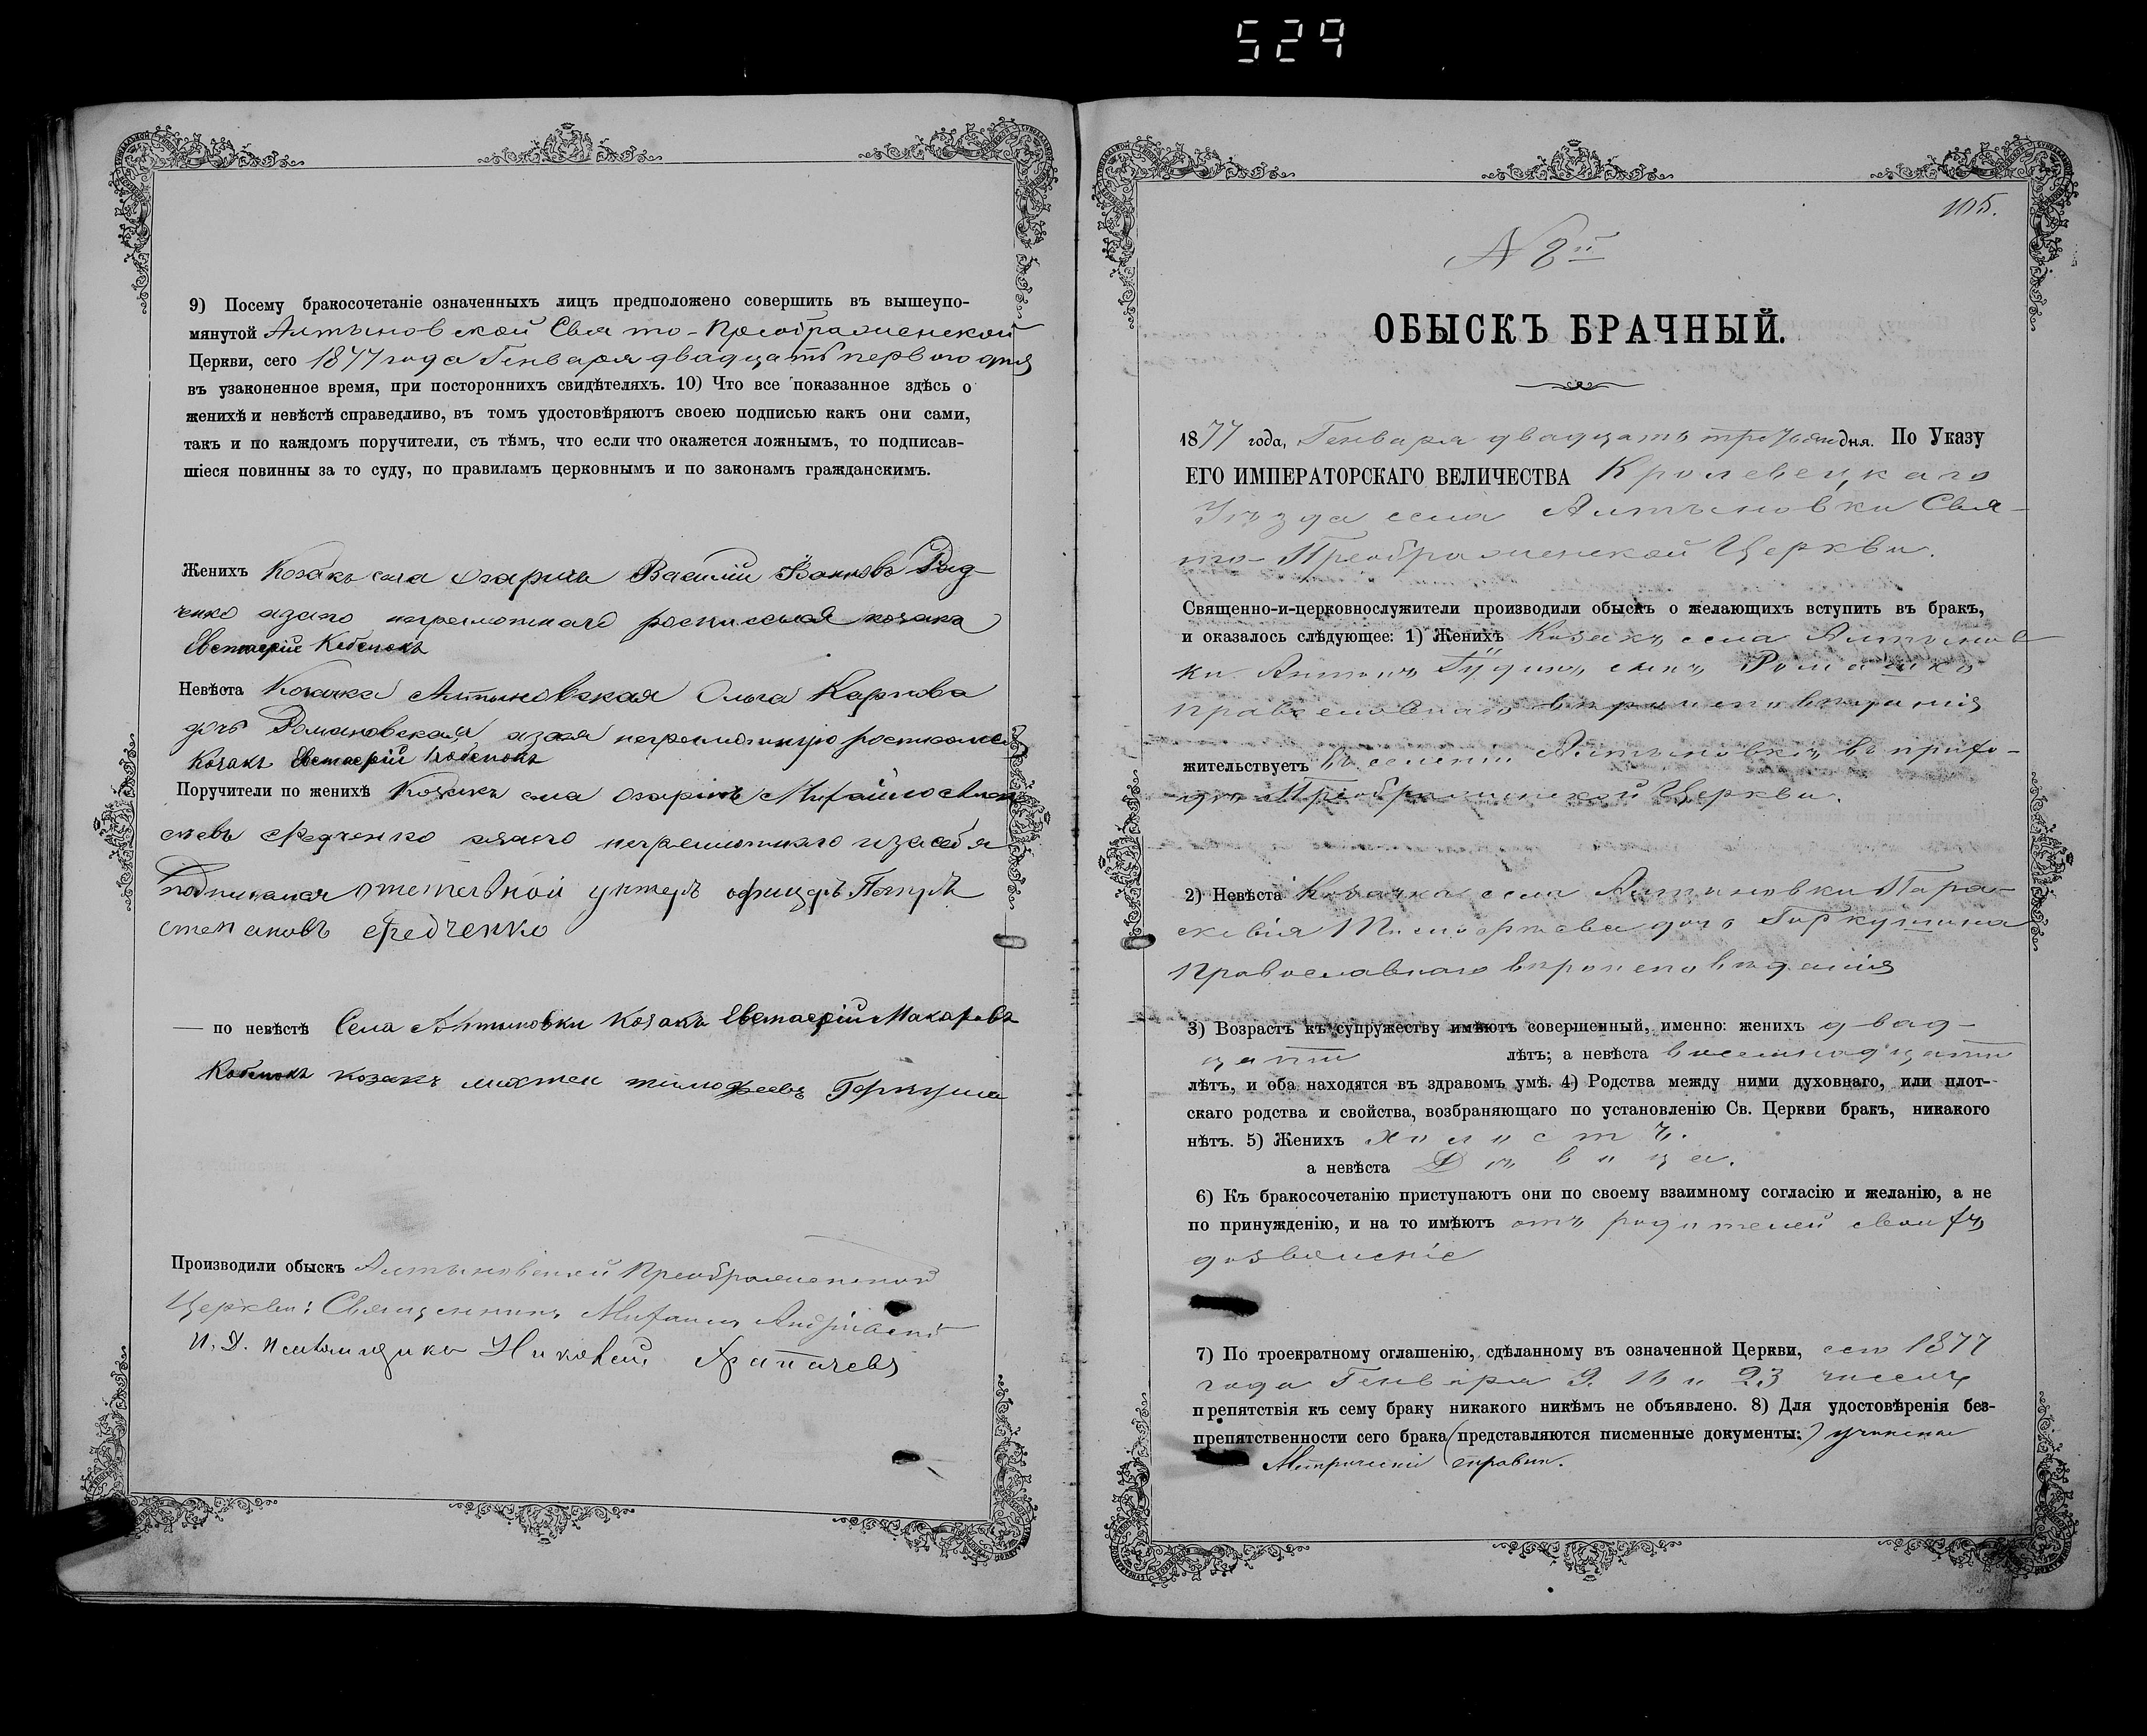 529
9) Посему бракосочетаніе означенныхъ лицъ предположено совершить въ вышеупо-
мянутой Алтыновской Свято-Преображенской
Церкви, сего 1877 года Генваря двадцать первого дня
въ узаконенное время, при постороннихъ свидѣтеляхъ. 10) Что все показанное здѣсь о
женихѣ и невѣстѣ справедливо, въ томъ удостовѣряютъ своею подписью какъ они сами,
такъ и по каждомъ поручители, съ тѣмъ, что если что окажется ложнымъ, то подписав-
шіеся повинны за то суду, по правиламъ церковнымъ и по законамъ гражданскимъ.
Женихъ Козакъ села Озаричъ Василій
ченко азаго неграмотнаго козакъ
Евстафій
Невѣста Козачка Алтыновская Ольга Карпова
дочь Романовская азая неграмотную
Козакъ Евстафій
Поручители по женихѣ Козакъ села Озаричъ Михайло
Федченко азаго неграмотнаго и за себя
подписался унтеръ офицеръ Петръ
степановъ Федченко
— по невѣстѣ Села Алтыновки Козакъ Евстафій Макаровъ
козакъ тимофеевъ Горкуша
Производили обыскъ Алтыновской Преображенской
Церкви: Священникъ Михаилъ
И. Д. Псаломщика Николай
105.
N 8й
ОБЫСКЪ БРАЧНЫЙ.
1877 года, Генваря двадцать третьяго дня. По Указу
ЕГО ИМПЕРАТОРСКАГО ВЕЛИЧЕСТВА Кролевецкаго
Уѣзда села Алтыновки Свя-
то-Преображенской Церкви.
Священно-и-церковнослужители производили обыскъ о желающихъ вступить въ бракъ,
и оказалось слѣдующее: 1) Женихъ Козакъ села Алтынов
ки Антонъ сынъ Ромашко
православнаго вѣроисповѣданія
жительствуетъ въ селеніи Алтыновкѣ, въ прихо-
дѣ Преображенской Церкви.
2) Невѣста Козачка села Алтыновки Пара-
скевія дочь Горкушина
Православнаго вѣроисповѣданія
3) Возрастъ къ супружеству имѣютъ совершенный, именно: женихъ двад-
цати лѣтъ; а невѣста восемнадцати
лѣтъ, и оба находятся въ здравомъ умѣ. 4) Родства между ними духовнаго, или плот-
скаго родства и свойства, возбраняющаго по установленію Св. Церкви бракъ, никакого
нѣтъ. 5) Женихъ холостъ.
а невѣста Дѣвица.
6) Къ бракосочетанію приступаютъ они по своему взаимному согласію и желанію, а не
по принужденію, и на то имѣютъ отъ родителей своихъ
дозволеніе
7) По троекратному оглашенію, сдѣланному въ означенной Церкви, сего 1877
года Генваря 9. 16 и 23 числъ
препятствія къ сему браку никакого никѣмъ не объявлено. 8) Для удостовѣренія без-
препятственности сего брака (представляются писменные документы:) учинены
Метрическіе справки.